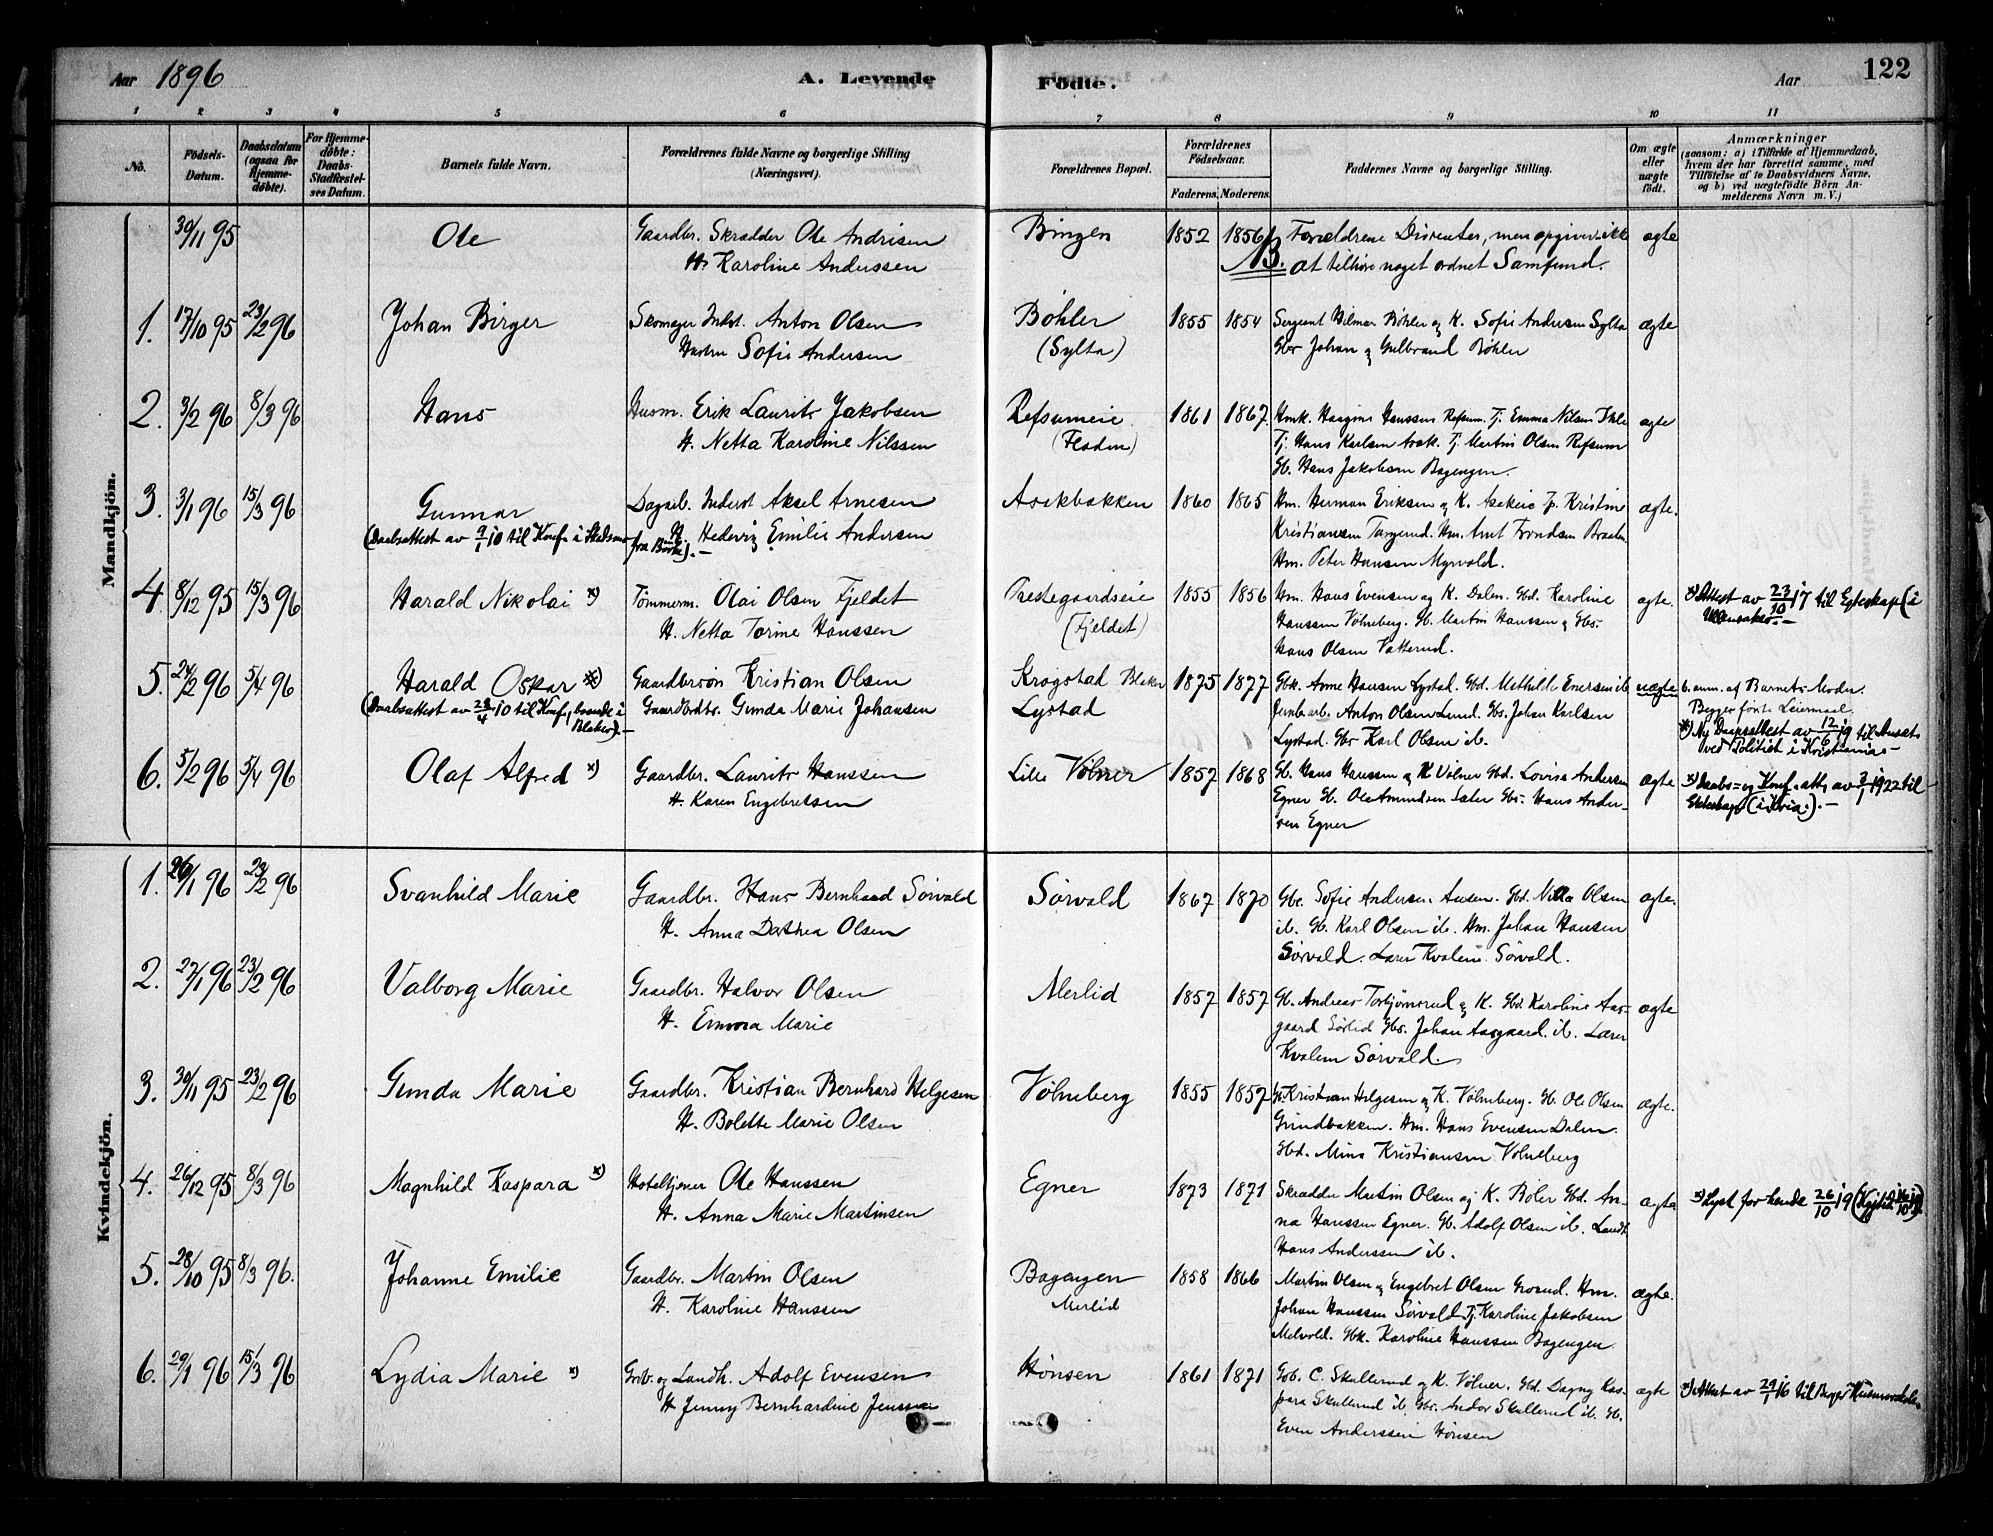 Aar 1896
A. Levende
Fødte.
Aar
122
1 2 3 4 5 6 7 8 9 10 11
No.
Fødsels-Datum.
Daabsdatum (ogsaa for Hjemme-døbte).
For Hjemme-døbte: Daabs-Stadfæstel-ses Datum.
Barnets fulde Navn.
Forældrenes fulde Navne og borgerlige Stilling (Næringsvei).
Forældrenes Bopæl.
Forældrenes Fødselsaar.
Faderens. Moderens.
Faddernes Navne og borgerlige Stilling.
Om ægte eller uægte født.
Anmærkninger
(saasom: a) i Tilfælde af Hjemmedaab,
hvem der har forrettet samme, med
Tilføielse af to Daabsvidners Navne,
og b) ved uægtefødte Børn An-
melderens Navn m. V.)
Mandkjøn.
30/11 95 Ole Gaardbr. Skrædder Ole Andrisen Bingen 1852 1856 NB. Forældrene Disenter, men opgiver ikke ægte
H. Karoline Anderssen at tilhøre noget ordnet Samfund.
1. 17/10 95 23/2 96 Johan Birger Skomager Inderst. Anton Olsen Bøhler 1855 1854 Sergeant Hilmar Bøhler og K. Sofie Andersen Sylta ægte
Hustru Sofie Andersen (Sylta) Gbr Johan og Gulbrand Bøhler
2. 3/2 96 8/3 96 Hans Husm. Erik Laurits Jakobsen Refsumeie 1861 1867 Hmk. Hansine Hanssen Refsum. Tj. Emma Nilsen Ihle ægte
H. Netta Karoline Nilssen Tj. Hans Karlsen Aask. Tj. Martin Olsen Refsum
Gb. Hans Jakobsen Bagengen.
3. 3/1 96 15/3 96 Gunnar Dagarb. Inderst Aksel Arnesen Aaskbakken 1860 1865 Hm. Herman Eriksen og K. Askeie Tj. Kristine ægte.
(Daabsattest av 9/1 10 til Konf. i Skedsmo H. Hedevig Emilie Andersen Kristiansen Hm. Amt Trondsen
fra Børke).— Hm. Peter Hansen Myrvold.
4. 8/12 95 15/3 96 Harald Nikolai x) Tømmerm. Olai Olsen Fjeldet Prestegaardseie 1855 1856 Hm. Hans Evensen og K. Dalen. Gbd. Karoline ægte. x) Attest av 23/10 17 til Egteskap (i
H. Netta Torine Hanssen (Fjeldet) Hanssen Vølneberg. Gb. Martin Hanssen og Gbs. Ullensaker.—
Hans Olsen Vatterud.
5. 24/2 96 5/4 96 Harald Oskar x) Gaardbrsøn Kristian Olsen Krogstad Blaker 1875 1877 Gbk. Anne Hansen Lystad. Gbd. Mathilde Enersen ib uægte b. anm. af Barnets Moder.
(Daabsattest av 28/4 10 til Konf., boende i Gaardbrdtr. Gunda Marie Johansen Lystad Jernbarb. Anton Olsen Lund. Gbs. Johan Karlsen Begges første Leiermaal.
Blaker).— Lystad. Gbs Karl Olsen ib. x) Ny Daapsattest av 12/6 19 til Ansæt.
ved Politiet i Kristiania.—
6. 5/2 96 5/4 96 Olaf Alfred x) Gaardbr. Laurits Hanssen Lille Vølner 1857 1868 Gb. Hans Hanssen og K Vølner Gbd. Lovisa Andersen ægte x) Daabs- og Konf.-att. av 3/1 1922 til
H. Karen Engebretsen Egner Gb. Ole Amundsen Sæter Gbs. Hans Ander- Ekteskap (i Kria.).—
sen Egner
Kvindekjøn.
1. 26/1 96 23/2 96 Svanhild Marie Gaardbr. Hans Bernhard Sørvald Sørvald 1867 1870 Gbr. Sofie Andersen Gbd. Olsen ægte.
H. Anna Dorthea Olsen ib. Gb. Karl Olsen ib. Hm. Johan Hansen
Sørvald. Lærer Kvalem Sørvald.
2. 27/1 96 23/2 96 Valborg Marie Gaardbr. Halvor Olsen Merlid 1857 1857 Gb. Andreas Torbjørnsrud og K. Gbd. Karoline Aas- ægte
H. Emma Marie gaard Sørlid Gbs. Johan Aasgaard ib. Lærer
Kvalem Sørvald.
3. 30/11 95 23/2 96 Gunda Marie Gaardbr. Kristian Bernhard Helgesen Vølneberg 1855 1857 Gb. Kristian Helgesen og K. Vølneberg. Gb. Ole Olsen ægte.
H. Bolette Marie Olsen Grindbakken. Hm. Hans Evensen Dalen.
Gbd. Mina Kristiansen Vølneberg
4. 26/12 95 8/3 96 Magnhild Kaspara x) Hoteltjener Ole Hanssen Egner 1873 1871 Skrædder Martin Olsen og K. Bøler Gbd. An- ægte x) Lyst for hende 26/10 19
H. Anna Marie Martinsen na Hanssen Egner. Gb. Adolf Olsen ib. Landh.
Hans Anderssen ib.
5. 28/10 95 8/3 96. Johanne Emilie Gaardbr. Martin Olsen Bagengen 1858 1866 Martin Olsen og Engebret Olsen Hm. ægte.
H. Karoline Hanssen Merlid Johan Hanssen Sørvald Tj. Karoline Jakobsen
Melvold. Gbk. Karoline Hanssen Bagengen.
6. 29/1 96 15/3 96 Lydia Marie x) Grb. og Landh. Adolf Evensen Hønsen 1861 1871 Gb. C. Skullerud og K. Vølner. Gbd. Dagny Kas- ægte x) Attest av 29/1 16 til
H Jenny Bernhardine Jenssen para Skullerud ib. Gbs. Andor Skullerud ib. Gb.
Even Anderssen Hønsen